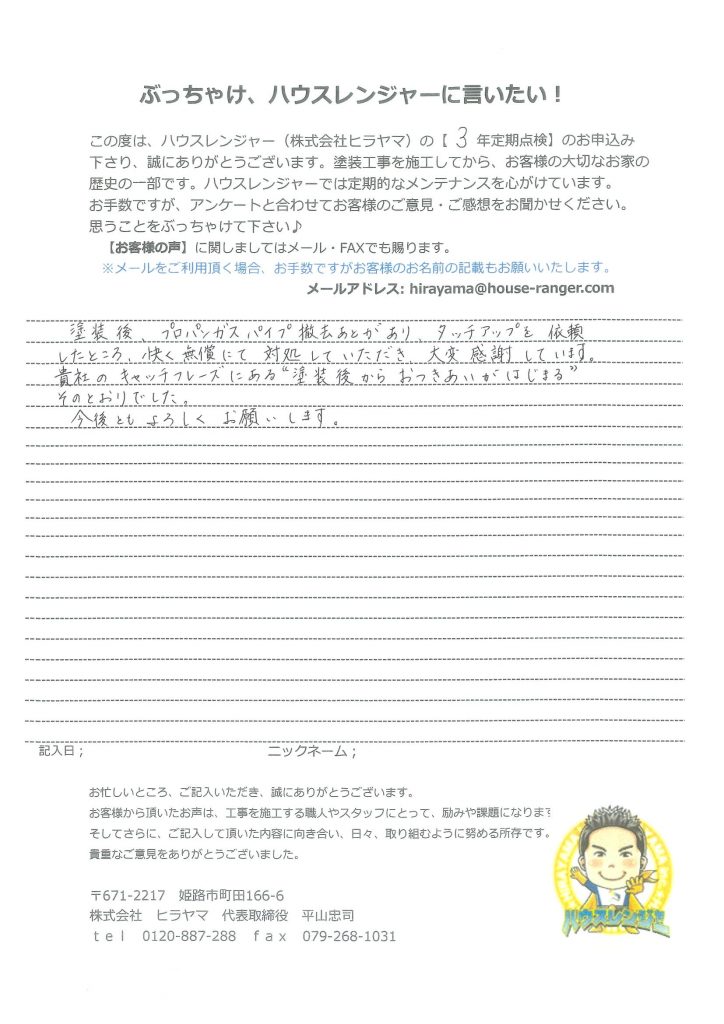 ぶっちゃけ、ハウスレンジャーに言いたい！
この度は、ハウスレンジャー（株式会社ヒラヤマ）の【 3 年定期点検】のお申込み
下さり、誠にありがとうございます。塗装工事を施工してから、お客様の大切なお家の
歴史の一部です。ハウスレンジャーでは定期的なメンテナンスを心がけています。
お手数ですが、アンケートと合わせてお客様のご意見・ご感想をお聞かせください。
思うことをぶっちゃけて下さい♪
【お客様の声】に関しましてはメール・FAXでも賜ります。
※メールをご利用頂く場合、お手数ですがお客様のお名前の記載もお願いいたします。
メールアドレス: hirayama@house-ranger.com
塗装後、プロパンガスパイプ撤去あとがあり、タッチアップを依頼
したところ、快く無償にて対処していただき、大変感謝しています。
貴社のキャッチフレーズにある“塗装後からおつきあいがはじまる”
そのとおりでした。
今後ともよろしくお願いします。
記入日； ニックネーム；
お忙しいところ、ご記入いただき、誠にありがとうございます。
お客様から頂いたお声は、工事を施工する職人やスタッフにとって、励みや課題になります
そしてさらに、ご記入して頂いた内容に向き合い、日々、取り組むように努める所存です。
貴重なご意見をありがとうございました。
〒671-2217 姫路市町田166-6
株式会社 ヒラヤマ 代表取締役 平山忠司
ｔｅｌ 0120-887-288 ｆａｘ 079-268-1031
ハウスレンジャー